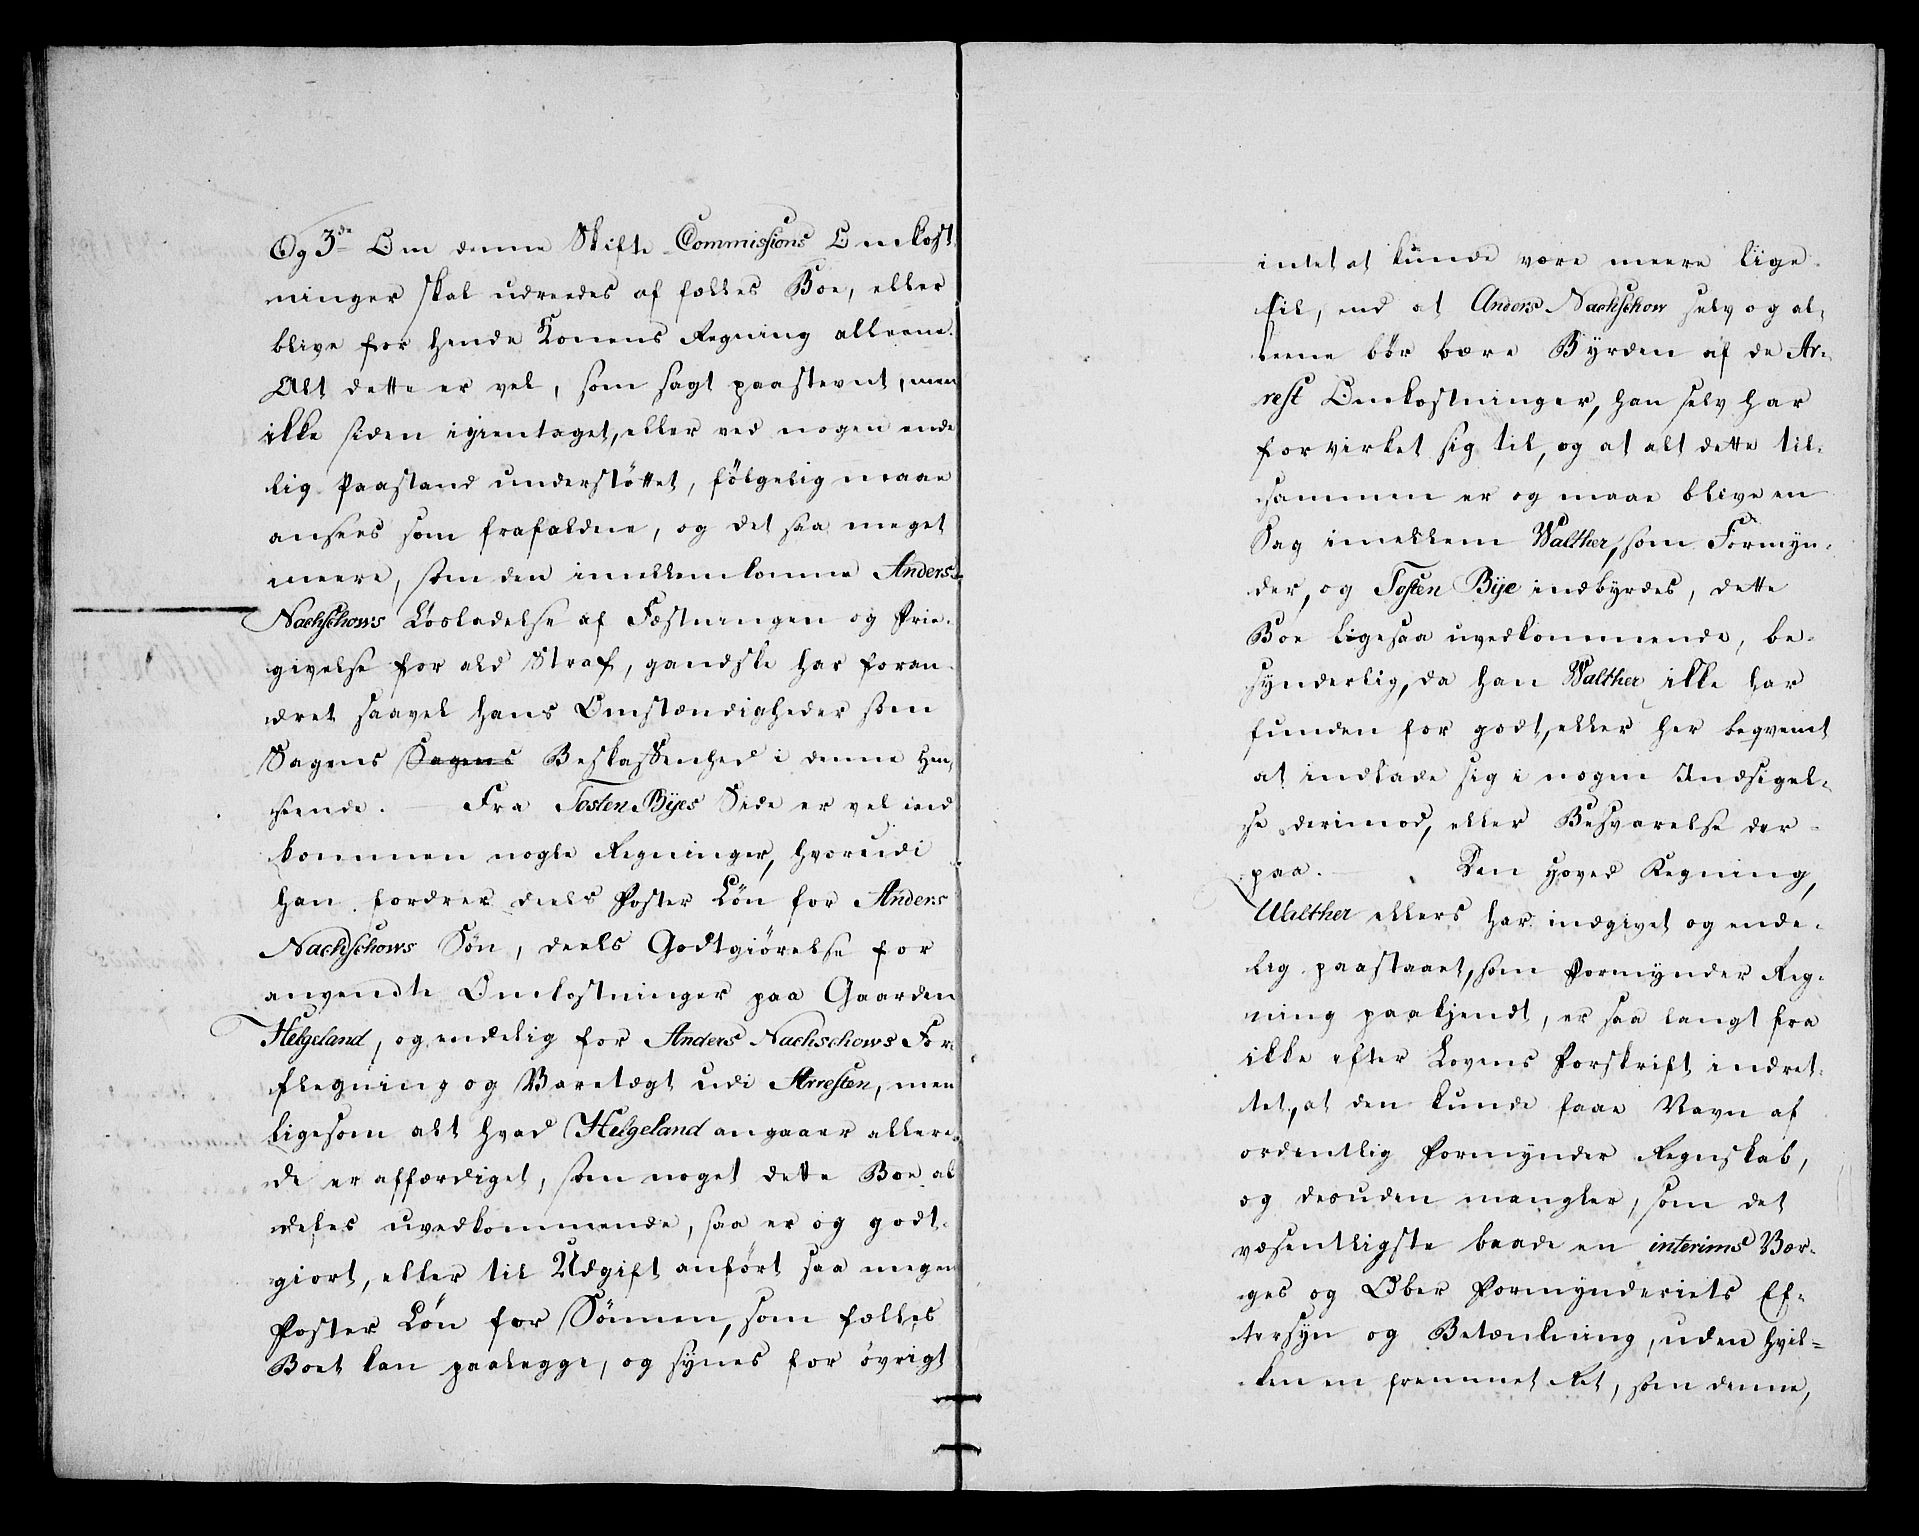 Og 3de Om denne Skifte Commissions Omkost
ninger skal udreedes af fælles Boe, eller
blive for hende Konens Regning alleene.
Alt dette er vel, som sagt paastevnt, men
ikke siden igientaget, eller ved nogen ende
lig Paastand understöttet, fölgelig maae
ansees som frafaldne, og det saa meget
meere, som den imellemkomne Anders
Nachschows Løsladelse af Fæstningen og Frie-
givelse for ald Straf, gandske har foran-
dret saavel hans Omstændigheder som
Sagens Sagens Beskaffenhed i denne Hen-
seende. — Fra Tosten Byes Side er vel ind
kommen nogle Regninger, hvorudi
han fordrer deels Foster Lön for Anders
Nachschows Sön, deels Godtgiörelse for
anvendte Omkostninger paa Gaarden
Helgeland, og endelig for Anders Nachschows For-
flegning og Varetægt udi Arresten, men
ligesom alt hvad Helgeland angaaer allere-
de er affærdiget, som noget dette Boe al
deles uvedkommende, saa er og godt-
giort, eller til Udgift anført saa megen
Foster Lön for Sönnen, som fælles
Boet kan paalegge, og synes for övrigt
intet at kunde være meere lige-
til, end at Anders Nachschow selv og al-
leene bör bære Byrden af de Ar-
rest Omkostninger, han selv har
forvirket sig til, og at alt dette til-
sammen er og maae blive en
Sag imellem Walther, som Formyn-
der, og Tosten Bye indbyrdes, dette
Boe ligesaa uvedkommende, be-
synderlig, da han Walther ikke har
funden for godt, eller her beqvemt
at indlade sig i nogen Indsigel-
se derimod, eller Besvarelse der-
paa. — Den Hoved Regning,
Walther ellers har indgivet og ende-
lig paastaaet, som Formynder Reg-
ning paakjendt, er saa langt fra
ikke efter Lovens Forskrift indret-
tet, at den kunde faae Navn af
ordentlig Formynder Regnskab,
og desuden mangler, som det
væsentligste baade en interims Vær-
ges og Ober Formynderiets Ef-
tersyn og Betænkning, uden hvil-
ken en fremmet Ret, som denne,